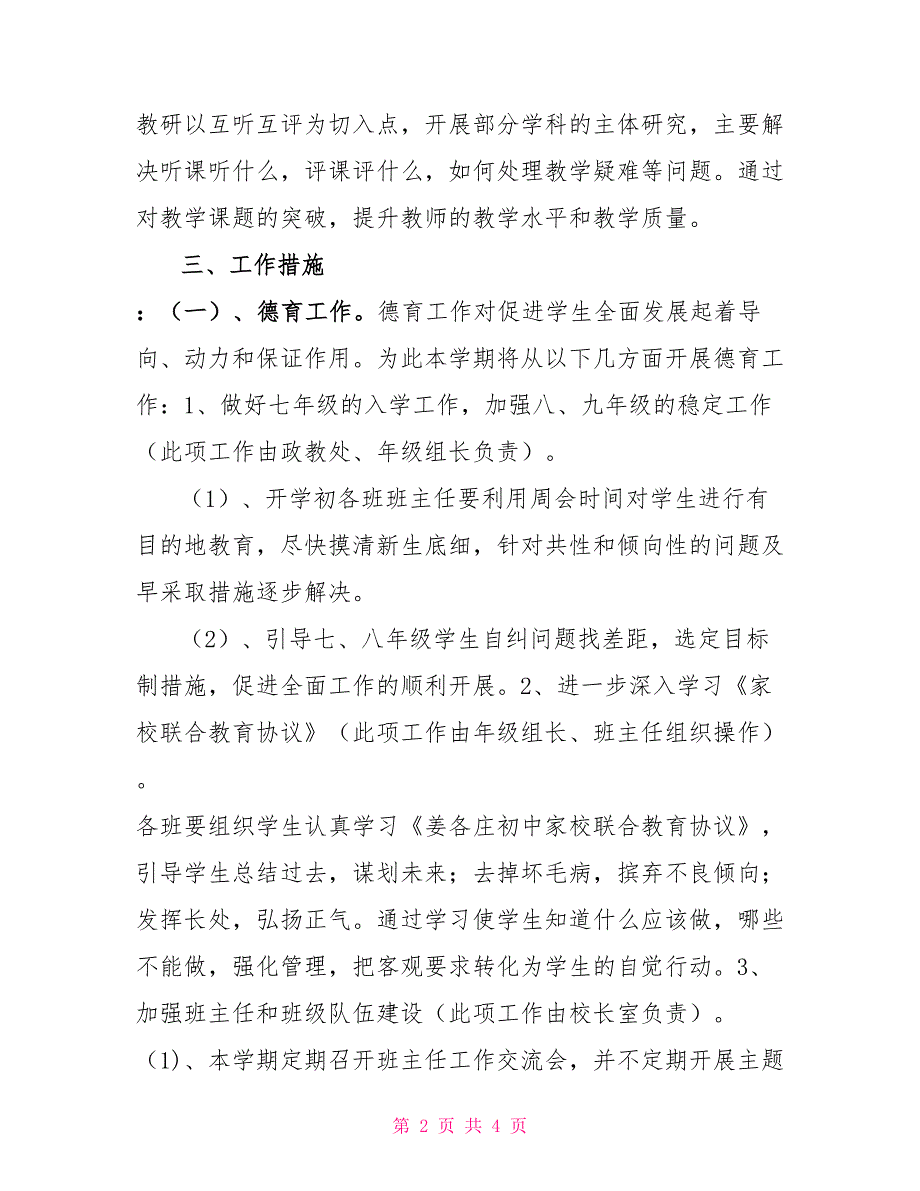 教研以互听互评为切入点，开展部分学科的主体研究，主要解
决听课听什么，评课评什么，如何处理教学疑难等问题。通过
对教学课题的突破，提升教师的教学水平和教学质量。
三、工作措施
：（一）、德育工作。德育工作对促进学生全面发展起着导
向、动力和保证作用。为此本学期将从以下几方面开展德育工
作：1、做好七年级的入学工作，加强八、九年级的稳定工作
（此项工作由政教处、年级组长负责）。
（1）、开学初各班班主任要利用周会时间对学生进行有
目的地教育，尽快摸清新生底细，针对共性和倾向性的问题及
早采取措施逐步解决。
（2）、引导七、八年级学生自纠问题找差距，选定目标
制措施，促进全面工作的顺利开展。2、进一步深入学习《家
校联合教育协议》（此项工作由年级组长、班主任组织操作）
。
各班要组织学生认真学习《姜各庄初中家校联合教育协议》，
引导学生总结过去，谋划未来；去掉坏毛病，摈弃不良倾向；
发挥长处，弘扬正气。通过学习使学生知道什么应该做，哪些
不能做，强化管理，把客观要求转化为学生的自觉行动。3、
加强班主任和班级队伍建设（此项工作由校长室负责）。
（1)、本学期定期召开班主任工作交流会，并不定期开展主题
第 2 页 共 4 页